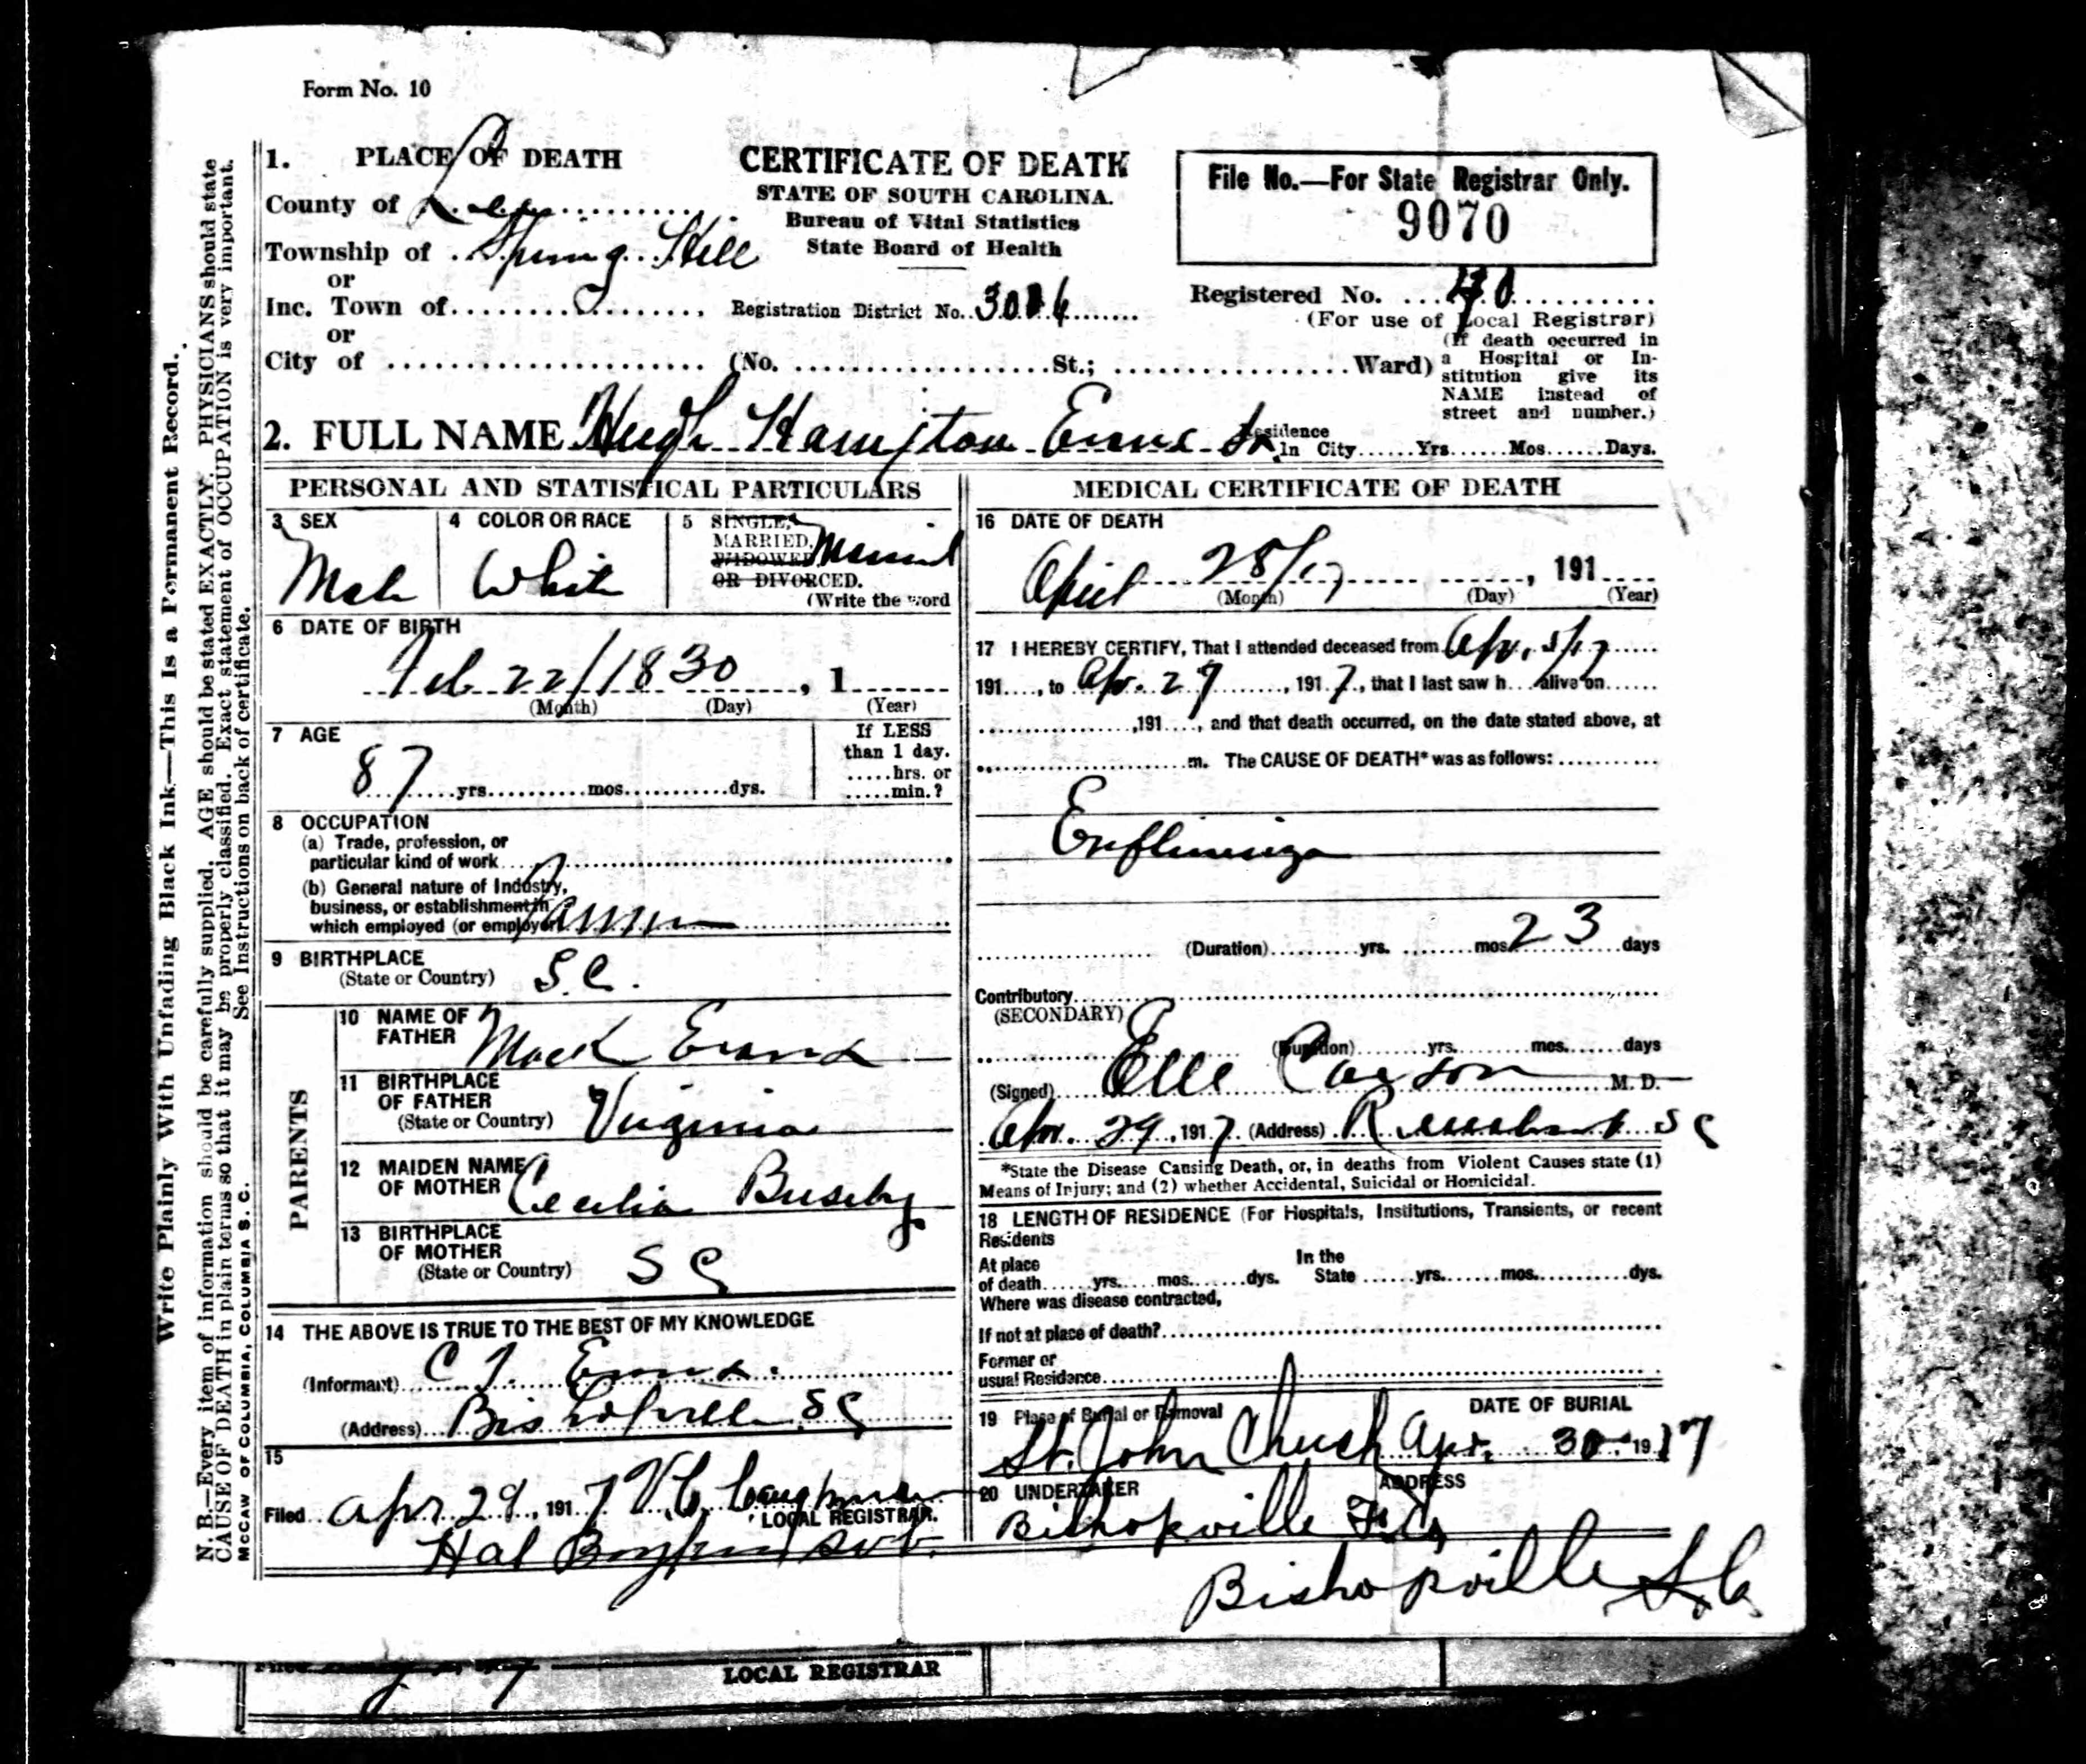 Form No. 10
1. PLACE OF DEATH
County of Lee
Township of Spring Hill
or
Inc. Town of
or
City of (No. St.; Ward)
CERTIFICATE OF DEATH
STATE OF SOUTH CAROLINA.
Bureau of Vital Statistics
State Board of Health
Registration District No. 3016
File No.—For State Registrar Only.
9070
Registered No.
(For use of Local Registrar)
(If death occurred in
a Hospital or In-
stitution give its
NAME instead of
street and number.)
2. FULL NAME Hugh Hampton Evans Sr. Residence
In City Yrs Mos Days.
PERSONAL AND STATISTICAL PARTICULARS
3 SEX
Male
4 COLOR OR RACE
White
5 SINGLE,
MARRIED, Married
WIDOWED
OR DIVORCED.
(Write the word
6 DATE OF BIRTH
Feb 22/1830, 1
(Month) (Day) (Year)
7 AGE
87 yrs. mos. dys.
If LESS
than 1 day.
hrs. or
min.?
8 OCCUPATION
(a) Trade, profession, or
particular kind of work
(b) General nature of Industry,
business, or establishment in
which employed (or employer) Farmer
9 BIRTHPLACE
(State or Country) S.C.
PARENTS
10 NAME OF
FATHER Mack Evans
11 BIRTHPLACE
OF FATHER
(State or Country) Virginia
12 MAIDEN NAME
OF MOTHER Cecelia Buseby
13 BIRTHPLACE
OF MOTHER
(State or Country) S C
14 THE ABOVE IS TRUE TO THE BEST OF MY KNOWLEDGE
(Informant) C T. Evans.
(Address) Bishopville SC
15
Filed Apr 29, 1917
LOCAL REGISTRAR.
Hal
MEDICAL CERTIFICATE OF DEATH
16 DATE OF DEATH
April 28/17, 191
(Month) (Day) (Year)
17 I HEREBY CERTIFY, That I attended deceased from Apr. 5/17
191, to Apr. 27, 1917, that I last saw h alive on
,191, and that death occurred, on the date stated above, at
m. The CAUSE OF DEATH* was as follows:
Enfluenza
(Duration) yrs. mos. 23 days
Contributory
(SECONDARY)
(Duration) yrs. mos. days
(Signed) M. D.
Apr. 29, 1917. (Address) SC
*State the Disease Causing Death, or, in deaths from Violent Causes state (1)
Means of Injury; and (2) whether Accidental, Suicidal or Homicidal.
18 LENGTH OF RESIDENCE (For Hospitals, Institutions, Transients, or recent
Residents
At place In the
of death yrs. mos. dys. State yrs. mos. dys.
Where was disease contracted,
If not at place of death?
Former or
usual Residence
19 Place of Burial or Removal DATE OF BURIAL
St. John Church Apr. 30 1917
20 UNDERTAKER ADDRESS
Bishopville
Bishopville S.C.
LOCAL REGISTRAR
Write Plainly With Unfading Black Ink.—This Is a Permanent Record.
N. B.—Every item of information should be carefully supplied. AGE should be stated EXACTLY. PHYSICIANS should state
CAUSE OF DEATH in plain terms so that it may be properly classified. Exact statement of OCCUPATION is very important.
See Instructions on back of certificate.
McCAW OF COLUMBIA, COLUMBIA S. C.